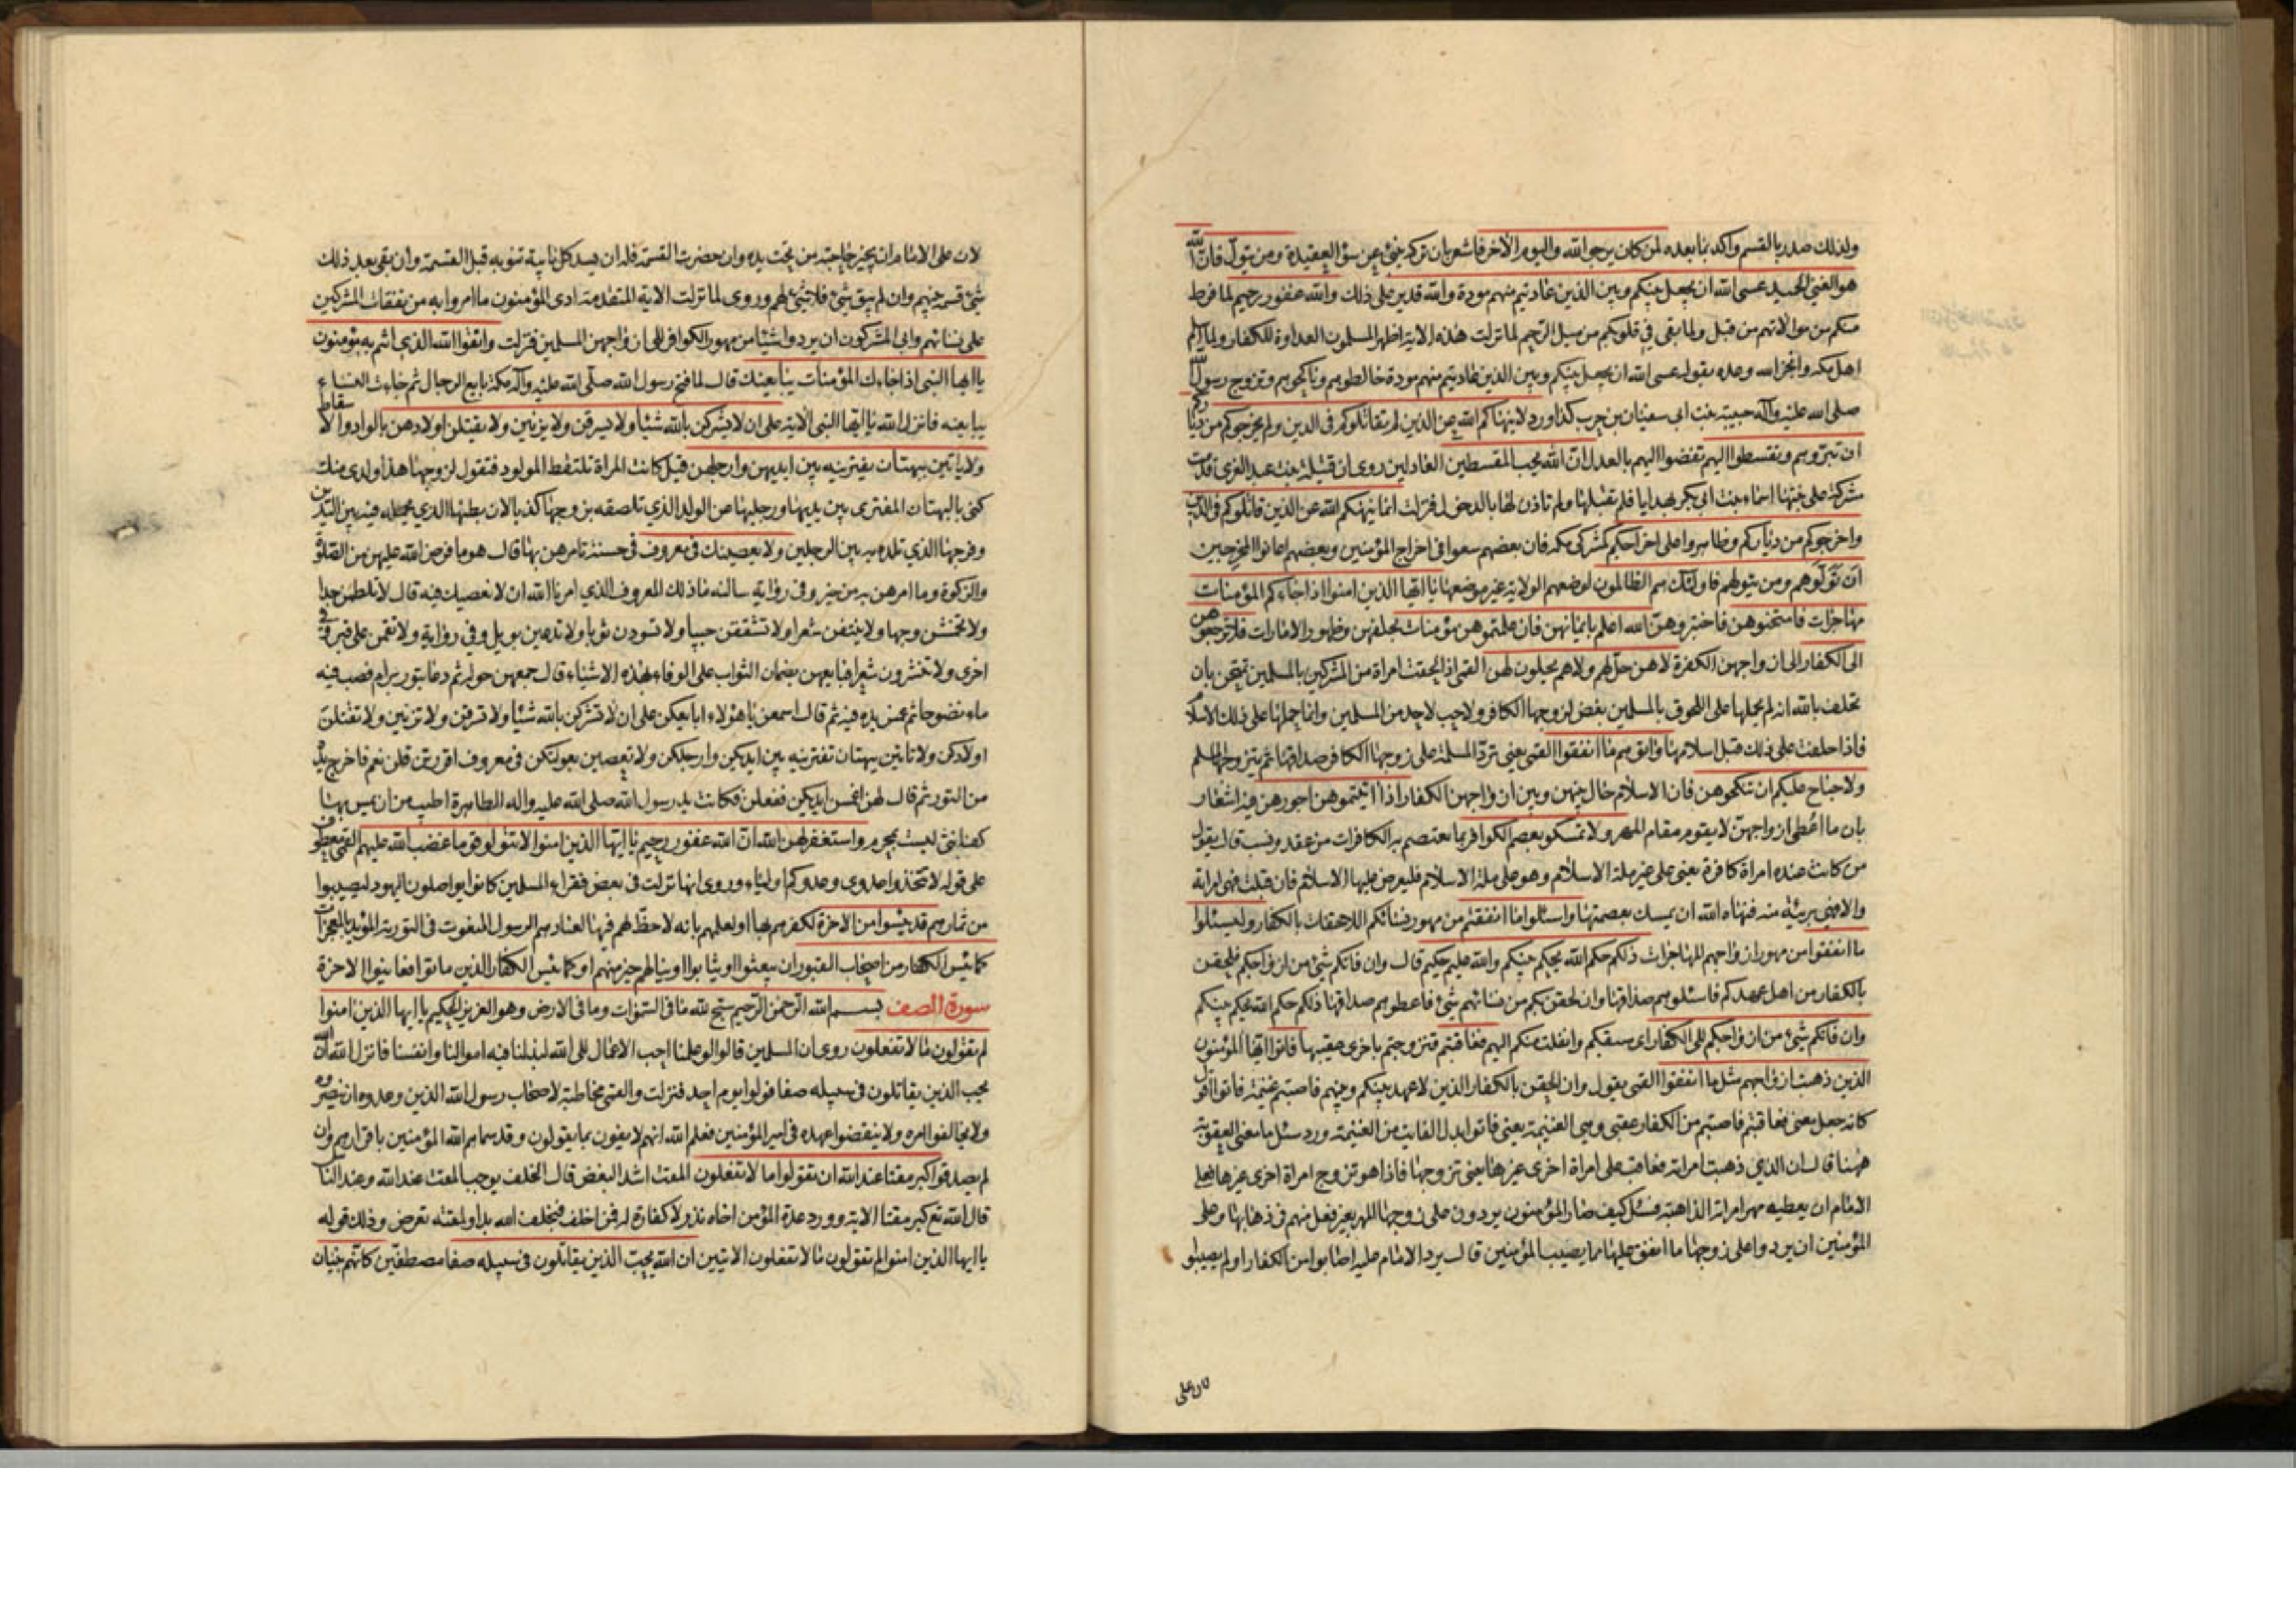 ولذلك صدر بالقسم واكد بما بعده لمن كان يرجو الله واليوم الاخر فاشعر بان تركه ينبئ عن سوء العقيدة ومن يتول فان الله
هو الغني الحميد عسى الله ان يجعل بينكم وبين الذين عاديتم منهم مودة والله قدير على ذلك والله غفور رحيم لما فرط
منكم من موالاتهم من قبل ولما بقي في قلوبكم من ميل الرحم لما نزلت هذه الاية اظهر المسلمون العداوة للكفار ولما اسلم
اهل مكة وانجز الله وعده بقوله عسى الله ان يجعل بينكم وبين الذين عاديتم منهم مودة خالطوهم وناكحوهم وتزوج رسول الله
صلى الله عليه وآله حبيبة بنت ابي سفيان بن حرب كذا ورد لا ينهاكم الله عن الذين لم يقاتلوكم في الدين ولم يخرجوكم من دياركم
ان تبروهم وتقسطوا اليهم تفضوا اليهم بالعدل ان الله يحب المقسطين العادلين روى ان قتيلة بنت عبد العزى قدمت
مشركة على بنتها اسماء بنت ابي بكر بهدايا فلم تقبلها ولم تاذن لها بالدخول فنزلت انما ينهيكم الله عن الذين قاتلوكم في الدين
واخرجوكم من دياركم وظاهروا على اخراجكم كمشركي مكة فان بعضهم سعوا في اخراج المؤمنين وبعضهم اعانوا المخرجين
ان تولوهم ومن يتولهم فاولئك هم الظالمون لوضعهم الولاية غير موضعها يا ايها الذين امنوا اذا جاءكم المؤمنات
مهاجرات فامتحنوهن فاختبروهن الله اعلم بايمانهن فان علمتموهن مؤمنات بحلفهن وظهور الامارات فلا ترجعوهن
الى الكفار الى ازواجهن الكفرة لا هن حل لهم ولا هم يحلون لهن القمي اذا لحقت امراة من المشركين بالمسلمين تمتحن بان
تحلف بالله انه لم يحملها على اللحوق بالمسلمين بغض لزوجها الكافر ولا حب لاحد من المسلمين وانما حملها على ذلك الاسلام
فاذا حلفت على ذلك قبل اسلامها واتوهم ما انفقوا القمي يعني ترد المسلمة على زوجها الكافر صداقها ثم يتزوجها المسلم
ولا جناح عليكم ان تنكحوهن فان الاسلام حال بينهن وبين ازواجهن الكفار اذا اتيتموهن اجورهن فيه اشعار
بان ما اعطى ازواجهن لا يقوم مقام المهر ولا تمسكوا بعصم الكوافر بما يعتصم به الكافرات من عقد ونسب قال يقول
من كانت عنده امراة كافرة يعني على غير ملة الاسلام وهو على ملة الاسلام فليعرض عليها الاسلام فان قبلت فهي امراته
والا فهي بريئة منه فنهاه الله ان يمسك بعصمتها واسئلوا ما انفقتم من مهور نسائكم اللاحقات بالكفار وليسئلوا
ما انفقوا من مهور ازواجهم المهاجرات ذلكم حكم الله يحكم بينكم والله عليم حكيم قال وان فاتكم شئ من ازواجكم فلحقن
بالكفار من اهل عهدكم فاسئلوهم صداقها وان لحقن بكم من نسائهم شئ فاعطوهم صداقها ذلكم حكم الله يحكم بينكم
وان فاتكم شئ من ازواجكم الى الكفار اي سبقكم وانفلت منكم اليهم فعاقبتم فتزوجتم باخرى عقيبها فاتوا ايها المؤمنون
الذين ذهبت ازواجهم مثل ما انفقوا القمي يقول وان لحقن بالكفار الذين لا عهد بينكم وبينهم فاصبتم غنيمة فاتوا قال
كانه جعل معنى فعاقبتم فاصبتم من الكفار عقبى وهي الغنيمة يعني فاتوا بدل الفائت من الغنيمة وورد سئل ما معنى العقوبة
ههنا قال ان الذي ذهبت امراته فعاقب على امراة اخرى غيرها يعني تزوجها فاذا هو تزوج امراة اخرى غيرها فعلى
الامام ان يعطيه مهر امراته الذاهبة فسئل كيف صار المؤمنون يردون على زوجها المهر بغير فعل منهم في ذهابها وعلى
المؤمنين ان يردوا على زوجها ما انفق عليها مما يصيب المؤمنين قال يرد الامام عليه اصابوا من الكفار او لم يصيبوا
لان على
لان على الامام ان يجيز حاجته من تحت يده وان حضرت القسمة فله ان يسد كل نائبة تنوبه قبل القسمة وان بقي بعد ذلك
شئ قسمه بينهم وان لم يبق شئ فلا شئ لهم وروى لما نزلت الاية المتقدمة ادى المؤمنون ما امروا به من نفقات المشركين
على نسائهم وابى المشركون ان يردوا شيئا من مهور الكوافر الى ازواجهن المسلمين فنزلت واتقوا الله الذي انتم به مؤمنون
يا ايها النبي اذا جاءك المؤمنات يبايعنك قال لما فتح رسول الله صلى الله عليه وآله مكة بايع الرجال ثم جاءت النساء
يبايعنه فانزل الله يا ايها النبي الاية على ان لا يشركن بالله شيئا ولا يسرقن ولا يزنين ولا يقتلن اولادهن بالواد والاسقاط
ولا ياتين ببهتان يفترينه بين ايديهن وارجلهن قيل كانت المراة تلتقط المولود فتقول لزوجها هذا ولدي منك
كنى بالبهتان المفترى بين يديها ورجليها عن الولد الذي تلصقه بزوجها كذبا لان بطنها الذي تحمله فيه بين اليدين
وفرجها الذي تلده به بين الرجلين ولا يعصينك في معروف في حسنة تامرهن بها قال هو ما فرض الله عليهن من الصلوة
والزكوة وما امرهن به من خير وفي رواية سالنه ما ذلك المعروف الذي امرنا الله ان لا نعصيك فيه قال لا تلطمن خدا
ولا تخمشن وجها ولا ينتفن شعرا ولا تشققن جيبا ولا تسودن ثوبا ولا تدعين بويل وفي رواية ولا تقمن على قبر وفي
اخرى ولا تنشرن شعرا فبايعهن بضمان الثواب على الوفاء بهذه الاشياء قال جمعهن حوله ثم دعا بتور برام فصب فيه
ماء نضوحا ثم غمس يده فيه ثم قال اسمعن يا هؤلاء ابايعكن على ان لا تشركن بالله شيئا ولا تسرقن ولا تزنين ولا تقتلن
اولادكن ولا تاتين ببهتان تفترينه بين ايديكن وارجلكن ولا تعصين بعولتكن في معروف اقررتن قلن نعم فاخرج يده
من التور ثم قال لهن اغمسن ايديكن ففعلن فكانت يد رسول الله صلى الله عليه وآله الطاهرة اطيب من ان يمس بها
كف انثى ليست بمحرم واستغفر لهن الله ان الله غفور رحيم يا ايها الذين امنوا لا تتولوا قوما غضب الله عليهم القمي معطوف
على قوله لا تتخذوا عدوي وعدوكم اولياء وروى انها نزلت في بعض فقراء المسلمين كانوا يواصلون اليهود ليصيبوا
من ثمارهم قد يئسوا من الاخرة لكفرهم بها او لعلمهم بانه لا حظ لهم فيها لعنادهم الرسول المنعوت في التورية المؤيد بالمعجزات
كما يئس الكفار من اصحاب القبور ان يبعثوا او يثابوا او ينالهم خير منهم او كما يئس الكفار الذين ماتوا فعاينوا الاخرة
سورة الصف بسم الله الرحمن الرحيم سبح لله ما في السموات وما في الارض وهو العزيز الحكيم يا ايها الذين امنوا
لم تقولون ما لا تفعلون روى ان المسلمين قالوا لو علمنا احب الاعمال الى الله لبذلنا فيه اموالنا وانفسنا فانزل الله ان الله
يحب الذين يقاتلون في سبيله صفا فولوا يوم احد فنزلت والقمي مخاطبة لاصحاب رسول الله الذين وعدوه ان ينصروه
ولا يخالفوا امره ولا ينقضوا عهده في امير المؤمنين فعلم الله انهم لا يفون بما يقولون وقد سماهم الله المؤمنين باقرارهم وان
لم يصدقوا كبر مقتا عند الله ان تقولوا ما لا تفعلون المقت اشد البغض قال الخلف يوجب المقت عند الله وعند الناس
قال الله تع كبر مقتا الاية وورد عدة المؤمن اخاه نذر لا كفارة له فمن اخلف فبخلف الله بدا ولمقته تعرض وذلك قوله
يا ايها الذين امنوا لم تقولون ما لا تفعلون الايتين ان الله يحب الذين يقاتلون في سبيله صفا مصطفين كانهم بنيان